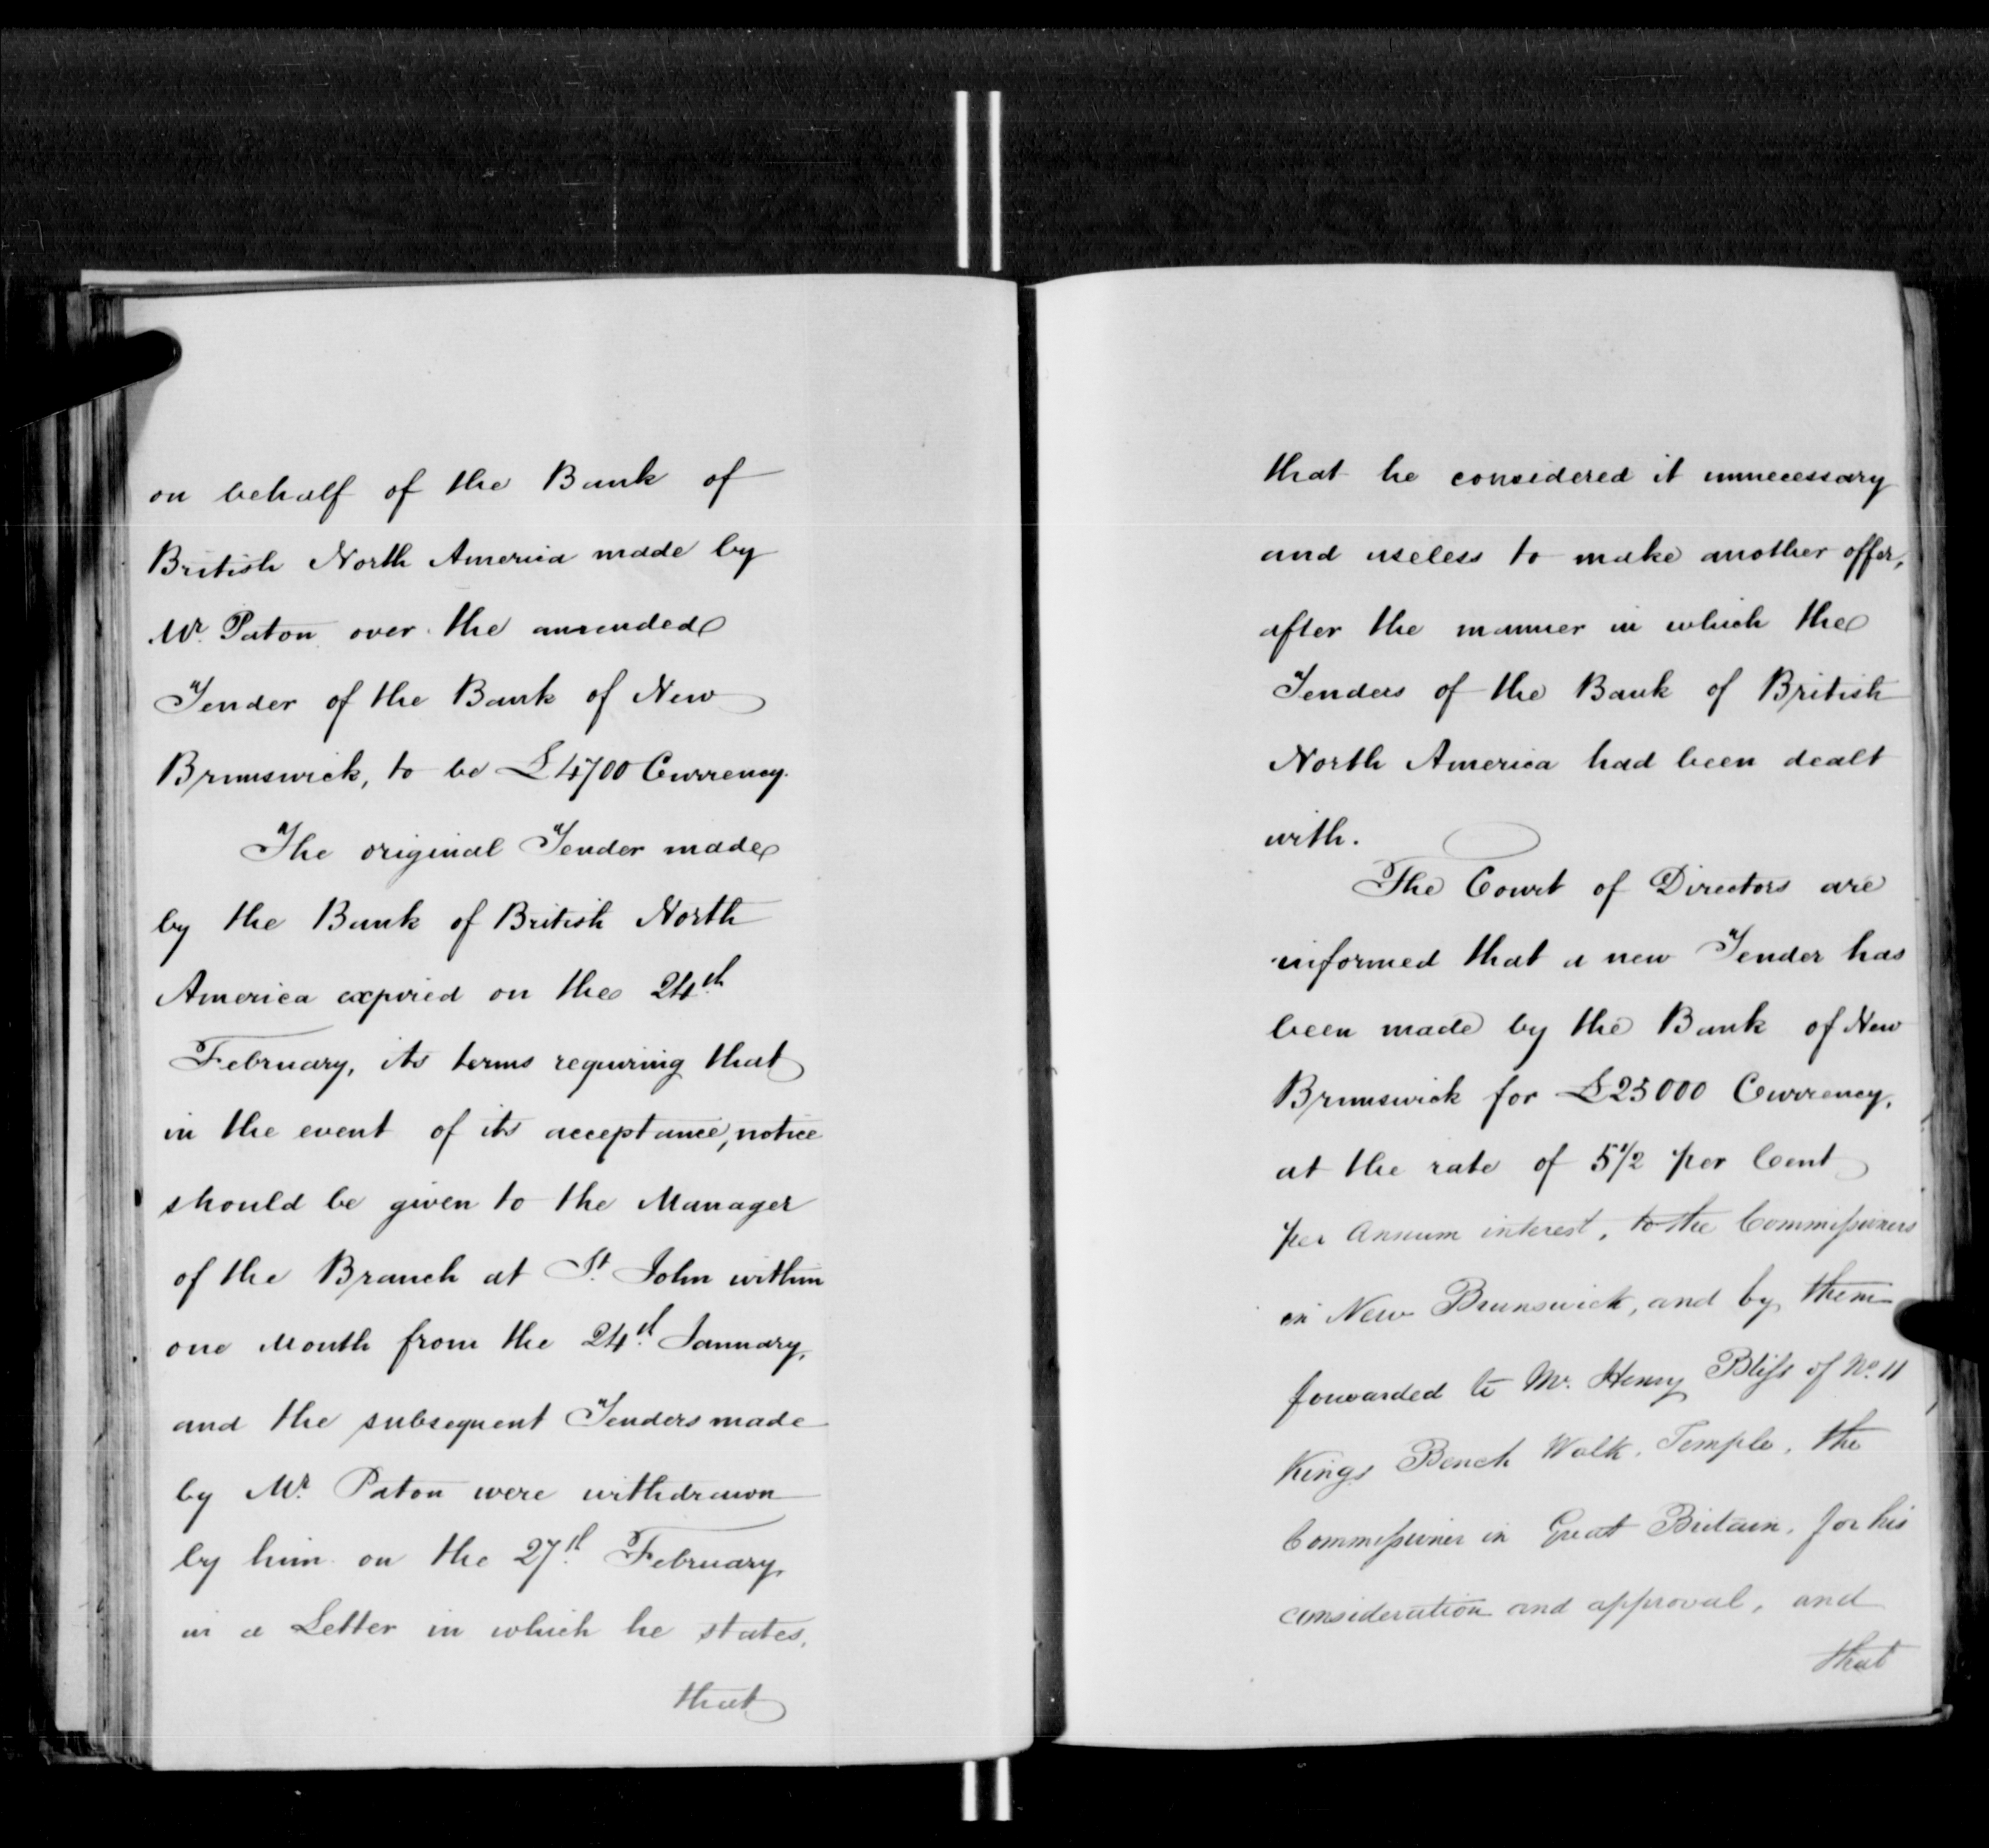 on behalf of the Bank of
British North America made by
Mr. Paton over the amended
Tender of the Bank of New
Brunswick, to be £4700 Currency.
The original Tender made
by the Bank of British North
America expired on the 24th
February, its terms requiring that
in the event of its acceptance, notice
should be given to the Manager
of the Branch at St. John within
one Month from the 24th January,
and the subsequent Tenders made
by Mr. Paton were withdrawn
by him on the 27th February,
in a Letter in which he states,
that
that he considered it unnecessary
and useless to make another offer,
after the manner in which the
Tenders of the Bank of British
North America had been dealt
with.
The Court of Directors are
informed that a new Tender has
been made by the Bank of New
Brunswick for £25000 Currency,
at the rate of 5 1/2 per Cent
per Annum interest, to the Commissioners
in New Brunswick, and by them
forwarded to Mr. Henry Bliss of No. 11
Kings Bench Walk, Temple, the
Commissioner in Great Britain, for his
consideration and approval, and
that